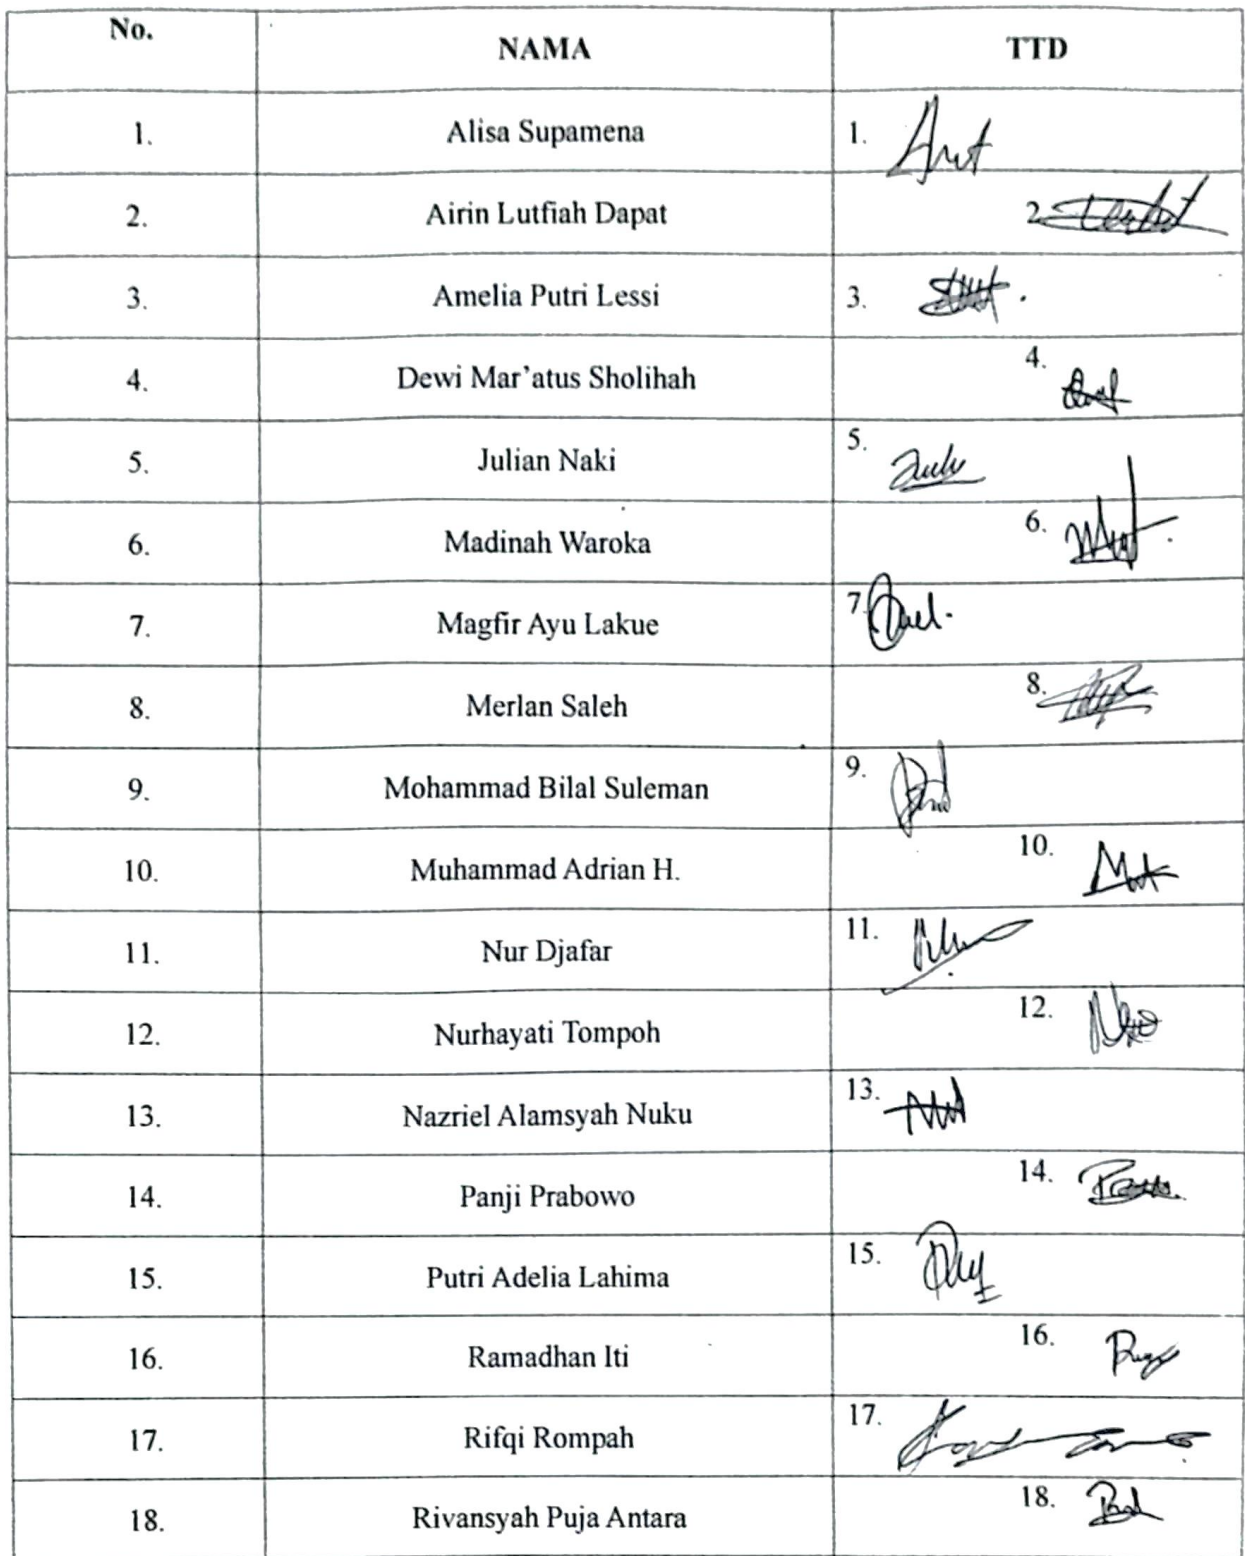 No. NAMA TTD
1. Alisa Supamena 1.
2. Airin Lutfiah Dapat 2.
3. Amelia Putri Lessi 3.
4. Dewi Mar’atus Sholihah 4.
5. Julian Naki 5.
6. Madinah Waroka 6.
7. Magfir Ayu Lakue 7.
8. Merlan Saleh 8.
9. Mohammad Bilal Suleman 9.
10. Muhammad Adrian H. 10.
11. Nur Djafar 11.
12. Nurhayati Tompoh 12.
13. Nazriel Alamsyah Nuku 13.
14. Panji Prabowo 14.
15. Putri Adelia Lahima 15.
16. Ramadhan Iti 16.
17. Rifqi Rompah 17.
18. Rivansyah Puja Antara 18.